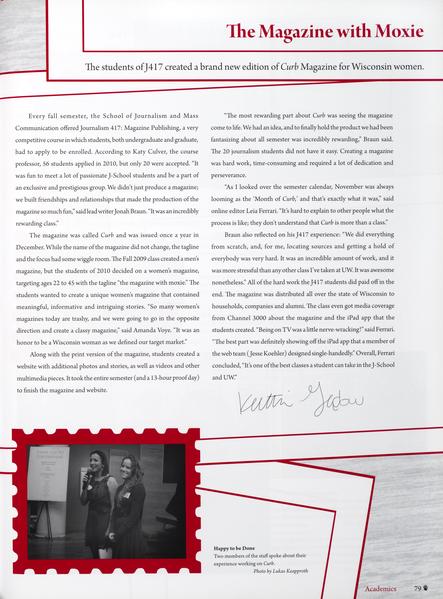 The Magazine with Moxie
The students of J417 created a brand new edition of Curb Magazine for Wisconsin women.
Every fall semester, the School of Journalism and Mass
Communication offered Journalism 417: Magazine Publishing, a very
competitive course in which students, both undergraduate and graduate,
had to apply to be enrolled. According to Katy Culver, the course
professor, 56 students applied in 2010, but only 20 were accepted. "It
was fun to meet a lot of passionate J-School students and be a part of
an exclusive and prestigious group. We didn't just produce a magazine;
we built friendships and relationships that made the production of the
magazine so much fun," said lead writer Jonah Braun. "It was an incredibly
rewarding class."
The magazine was called Curb and was issued once a year in
December. While the name of the magazine did not change, the tagline
and the focus had some wiggle room. The Fall 2009 class created a men's
magazine, but the students of 2010 decided on a women's magazine,
targeting ages 22 to 45 with the tagline "the magazine with moxie." The
students wanted to create a unique women's magazine that contained
meaningful, informative and intriguing stories. "So many women's
magazines today are trashy, and we were going to go in the opposite
direction and create a classy magazine," said Amanda Voye. "It was an
honor to be a Wisconsin woman as we defined our target market."
Along with the print version of the magazine, students created a
website with additional photos and stories, as well as videos and other
multimedia pieces. It took the entire semester (and a 13-hour proof day)
to finish the magazine and website.
"The most rewarding part about Curb was seeing the magazine
come to life. We had an idea, and to finally hold the product we had been
fantasizing about all semester was incredibly rewarding," Braun said.
The 20 journalism students did not have it easy. Creating a magazine
was hard work, time-consuming and required a lot of dedication and
perseverance.
"As I looked over the semester calendar, November was always
looming as the 'Month of Curb,' and that's exactly what it was," said
online editor Leia Ferrari. "It's hard to explain to other people what the
process is like; they don't understand that Curb is more than a class."
Braun also reflected on his J417 experience: "We did everything
from scratch, and, for me, locating sources and getting a hold of
everybody was very hard. It was an incredible amount of work, and it
was more stressful than any other class I've taken at UW. It was awesome
nonetheless." All of the hard work the J417 students did paid off in the
end. The magazine was distributed all over the state of Wisconsin to
households, companies and alumni. The class even got media coverage
from Channel 3000 about the magazine and the iPad app that the
students created. "Being on TV was a little nerve-wracking!" said Ferrari.
"The best part was definitely showing off the iPad app that a member of the
web team (Jesse Koehler) designed single-handedly." Overall, Ferrari
concluded, "It's one of the best classes a student can take in the J-School
and UW."
Happy to be Done
Two members of the staff spoke about their
experience working on Curb.
Photo by Lukas Keapproth
Academics 79